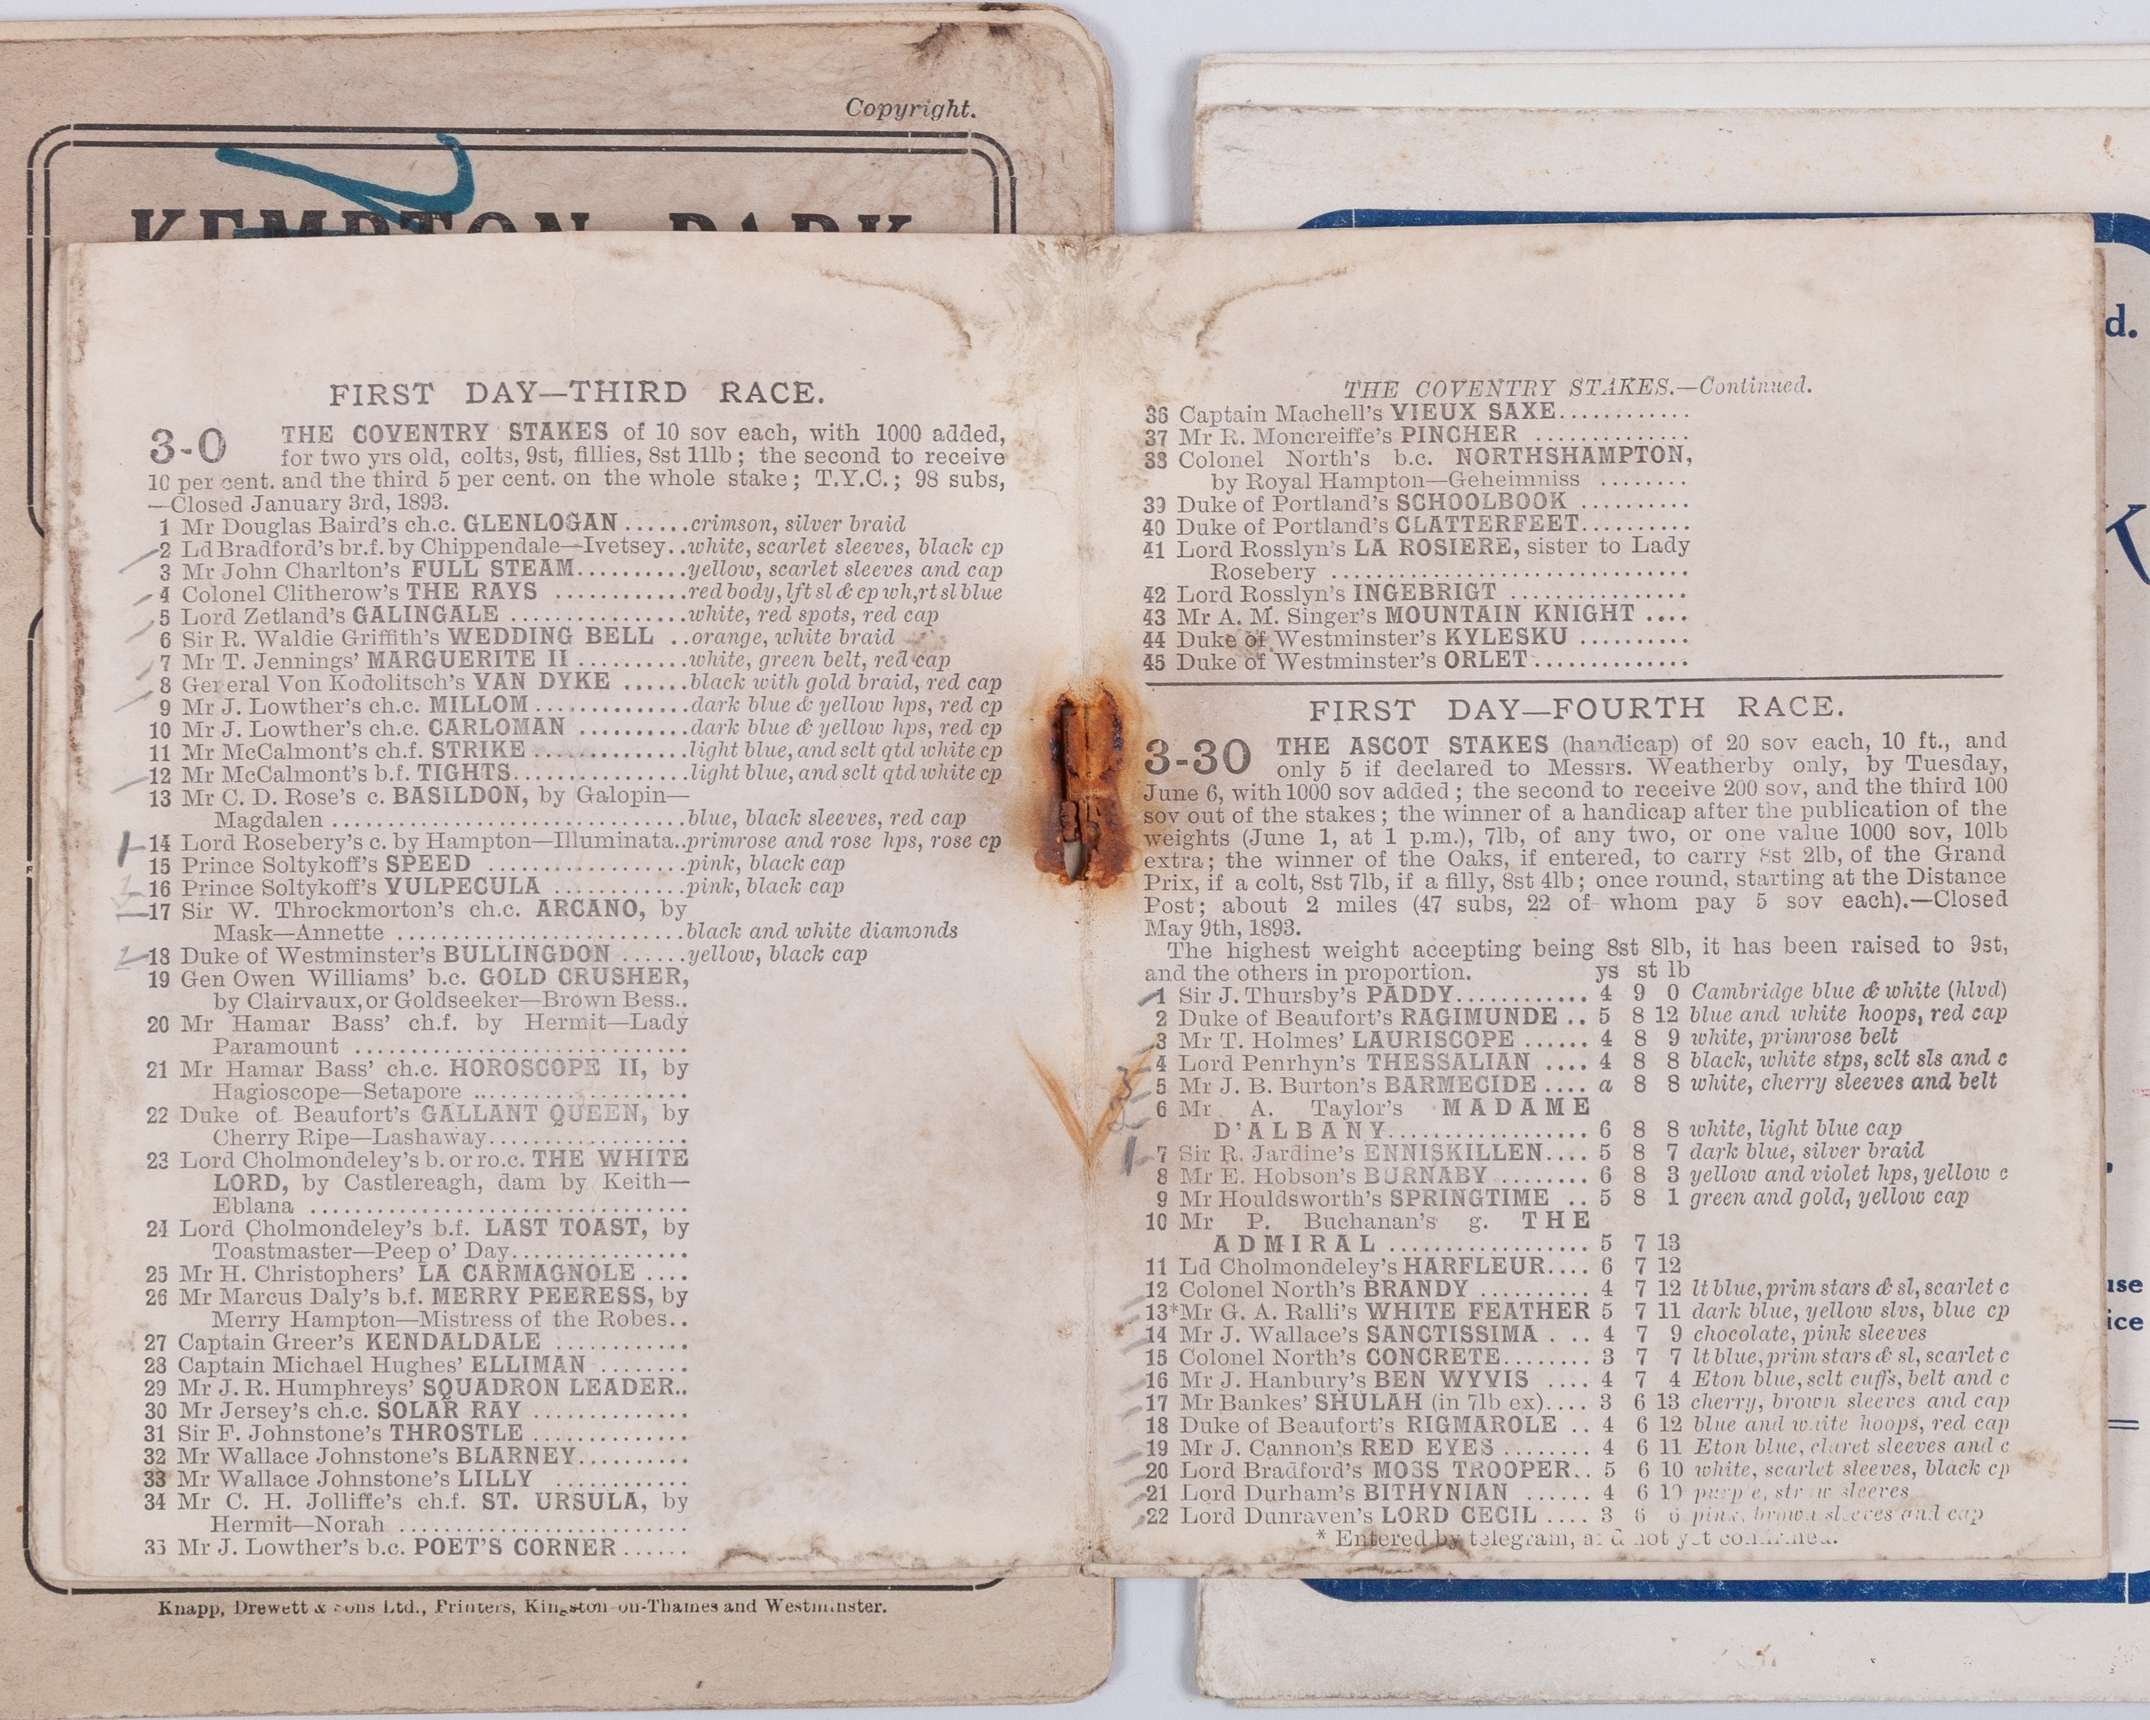 Copyright.
KEMPTON PARK
FIRST DAY—THIRD RACE.
3-0 THE COVENTRY STAKES of 10 sov each, with 1000 added,
for two yrs old, colts, 9st, fillies, 8st 11lb; the second to receive
10 per cent. and the third 5 per cent. on the whole stake; T.Y.C.; 98 subs,
—Closed January 3rd, 1893.
1 Mr Douglas Baird's ch.c. GLENLOGAN ...... crimson, silver braid
2 Ld Bradford's br.f. by Chippendale—Ivetsey.. white, scarlet sleeves, black cp
3 Mr John Charlton's FULL STEAM.......... yellow, scarlet sleeves and cap
4 Colonel Clitherow's THE RAYS ............ red body, lft sl & cp wh, rt sl blue
5 Lord Zetland's GALINGALE ................ white, red spots, red cap
6 Sir R. Waldie Griffith's WEDDING BELL .. orange, white braid
7 Mr T. Jennings' MARGUERITE II .......... white, green belt, red cap
8 General Von Kodolitsch's VAN DYKE ...... black with gold braid, red cap
9 Mr J. Lowther's ch.c. MILLOM .............. dark blue & yellow hps, red cp
10 Mr J. Lowther's ch.c. CARLOMAN .......... dark blue & yellow hps, red cp
11 Mr McCalmont's ch.f. STRIKE .............. light blue, and sclt qtd white cp
12 Mr McCalmont's b.f. TIGHTS................ light blue, and sclt qtd white cp
13 Mr C. D. Rose's c. BASILDON, by Galopin—
Magdalen ................................ blue, black sleeves, red cap
1 14 Lord Rosebery's c. by Hampton—Illuminata.. primrose and rose hps, rose cp
15 Prince Soltykoff's SPEED .................. pink, black cap
16 Prince Soltykoff's VULPECULA ............ pink, black cap
17 Sir W. Throckmorton's ch.c. ARCANO, by
Mask—Annette .......................... black and white diamonds
2 18 Duke of Westminster's BULLINGDON ...... yellow, black cap
19 Gen Owen Williams' b.c. GOLD CRUSHER,
by Clairvaux, or Goldseeker—Brown Bess..
20 Mr Hamar Bass' ch.f. by Hermit—Lady
Paramount ..............................
21 Mr Hamar Bass' ch.c. HOROSCOPE II, by
Hagioscope—Setapore ....................
22 Duke of Beaufort's GALLANT QUEEN, by
Cherry Ripe—Lashaway..................
23 Lord Cholmondeley's b. or ro.c. THE WHITE
LORD, by Castlereagh, dam by Keith—
Eblana ..................................
24 Lord Cholmondeley's b.f. LAST TOAST, by
Toastmaster—Peep o' Day................
25 Mr H. Christophers' LA CARMAGNOLE ....
26 Mr Marcus Daly's b.f. MERRY PEERESS, by
Merry Hampton—Mistress of the Robes..
27 Captain Greer's KENDALDALE ............
28 Captain Michael Hughes' ELLIMAN ........
29 Mr J. R. Humphreys' SQUADRON LEADER..
30 Mr Jersey's ch.c. SOLAR RAY ..............
31 Sir F. Johnstone's THROSTLE ..............
32 Mr Wallace Johnstone's BLARNEY..........
33 Mr Wallace Johnstone's LILLY ............
34 Mr C. H. Jolliffe's ch.f. ST. URSULA, by
Hermit—Norah ..........................
35 Mr J. Lowther's b.c. POET'S CORNER ......
Knapp, Drewett & Sons Ltd., Printers, Kingston-on-Thames and Westminster.
THE COVENTRY STAKES.—Continued.
36 Captain Machell's VIEUX SAXE............
37 Mr R. Moncreiffe's PINCHER ..............
38 Colonel North's b.c. NORTHSHAMPTON,
by Royal Hampton—Geheimniss ........
39 Duke of Portland's SCHOOLBOOK ..........
40 Duke of Portland's CLATTERFEET..........
41 Lord Rosslyn's LA ROSIERE, sister to Lady
Rosebery ................................
42 Lord Rosslyn's INGEBRIGT ................
43 Mr A. M. Singer's MOUNTAIN KNIGHT ....
44 Duke of Westminster's KYLESKU ..........
45 Duke of Westminster's ORLET..............
FIRST DAY—FOURTH RACE.
3-30 THE ASCOT STAKES (handicap) of 20 sov each, 10 ft., and
only 5 if declared to Messrs. Weatherby only, by Tuesday,
June 6, with 1000 sov added; the second to receive 200 sov, and the third 100
sov out of the stakes; the winner of a handicap after the publication of the
weights (June 1, at 1 p.m.), 7lb, of any two, or one value 1000 sov, 10lb
extra; the winner of the Oaks, if entered, to carry 8st 2lb, of the Grand
Prix, if a colt, 8st 7lb, if a filly, 8st 4lb; once round, starting at the Distance
Post; about 2 miles (47 subs, 22 of whom pay 5 sov each).—Closed
May 9th, 1893.
The highest weight accepting being 8st 8lb, it has been raised to 9st,
and the others in proportion. ys st lb
1 Sir J. Thursby's PADDY............ 4 9 0 Cambridge blue & white (hlvd)
2 Duke of Beaufort's RAGIMUNDE .. 5 8 12 blue and white hoops, red cap
3 Mr T. Holmes' LAURISCOPE ...... 4 8 9 white, primrose belt
4 Lord Penrhyn's THESSALIAN .... 4 8 8 black, white stps, sclt sls and c
3 5 Mr J. B. Burton's BARMECIDE .... a 8 8 white, cherry sleeves and belt
2 6 Mr A. Taylor's MADAME
D'ALBANY.................. 6 8 8 white, light blue cap
1 7 Sir R. Jardine's ENNISKILLEN.... 5 8 7 dark blue, silver braid
8 Mr E. Hobson's BURNABY ........ 6 8 3 yellow and violet hps, yellow c
9 Mr Houldsworth's SPRINGTIME .. 5 8 1 green and gold, yellow cap
10 Mr P. Buchanan's g. THE
ADMIRAL .................. 5 7 13
11 Ld Cholmondeley's HARFLEUR.... 6 7 12
12 Colonel North's BRANDY .......... 4 7 12 lt blue, prim stars & sl, scarlet c
13*Mr G. A. Ralli's WHITE FEATHER 5 7 11 dark blue, yellow slvs, blue cp
14 Mr J. Wallace's SANCTISSIMA . .. 4 7 9 chocolate, pink sleeves
15 Colonel North's CONCRETE........ 3 7 7 lt blue, prim stars & sl, scarlet c
16 Mr J. Hanbury's BEN WYVIS .... 4 7 4 Eton blue, sclt cuffs, belt and c
17 Mr Bankes' SHULAH (in 7lb ex).... 3 6 13 cherry, brown sleeves and cap
18 Duke of Beaufort's RIGMAROLE .. 4 6 12 blue and white hoops, red cap
19 Mr J. Cannon's RED EYES ........ 4 6 11 Eton blue, claret sleeves and c
20 Lord Bradford's MOSS TROOPER.. 5 6 10 white, scarlet sleeves, black cp
21 Lord Durham's BITHYNIAN ...... 4 6 10 purple, straw sleeves
22 Lord Dunraven's LORD CECIL .... 3 6 6 pink, brown sleeves and cap
* Entered by telegram, and not yet confirmed.
d.
K
use
ice